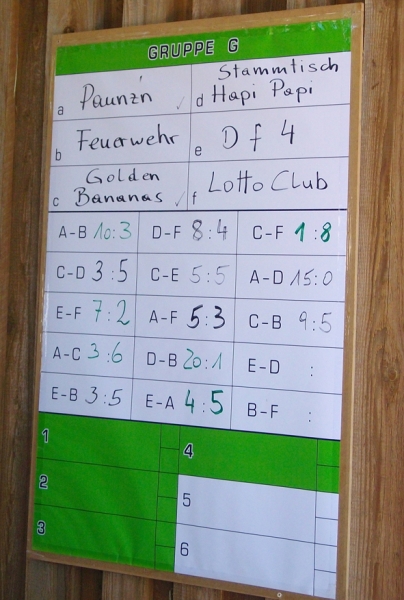 GRUPPE G
a Paunz'n ✓
d Stammtisch
Hapi Papi
b Feuerwehr
e D f 4
c Golden
Bananas ✓
f Lotto Club
A-B 10:3 D-F 8:4 C-F 1:8
C-D 3:5 C-E 5:5 A-D 15:0
E-F 7:2 A-F 5:3 C-B 9:5
A-C 3:6 D-B 20:1 E-D :
E-B 3:5 E-A 4:5 B-F :
1
4
2
5
3
6